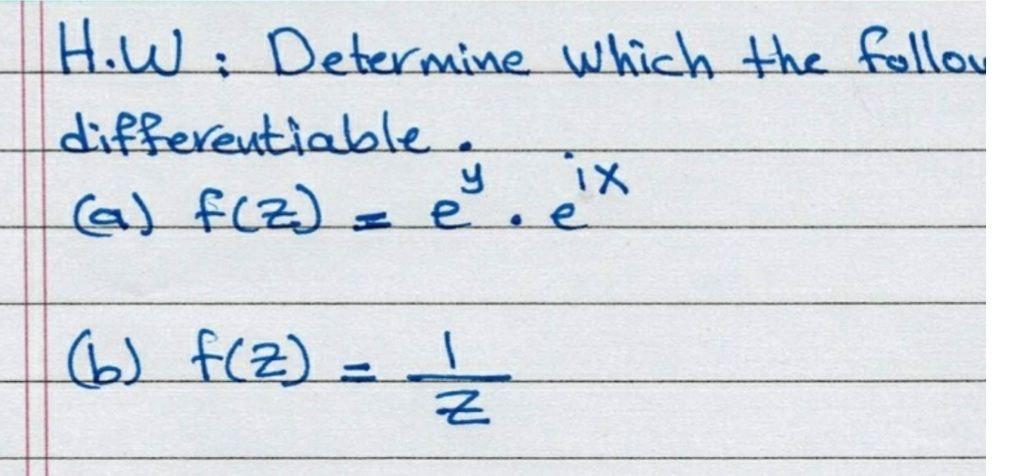 H.W : Determine which the follow
differentiable.
(a) f(z) = e^y . e^ix
(b) f(z) = 1/z